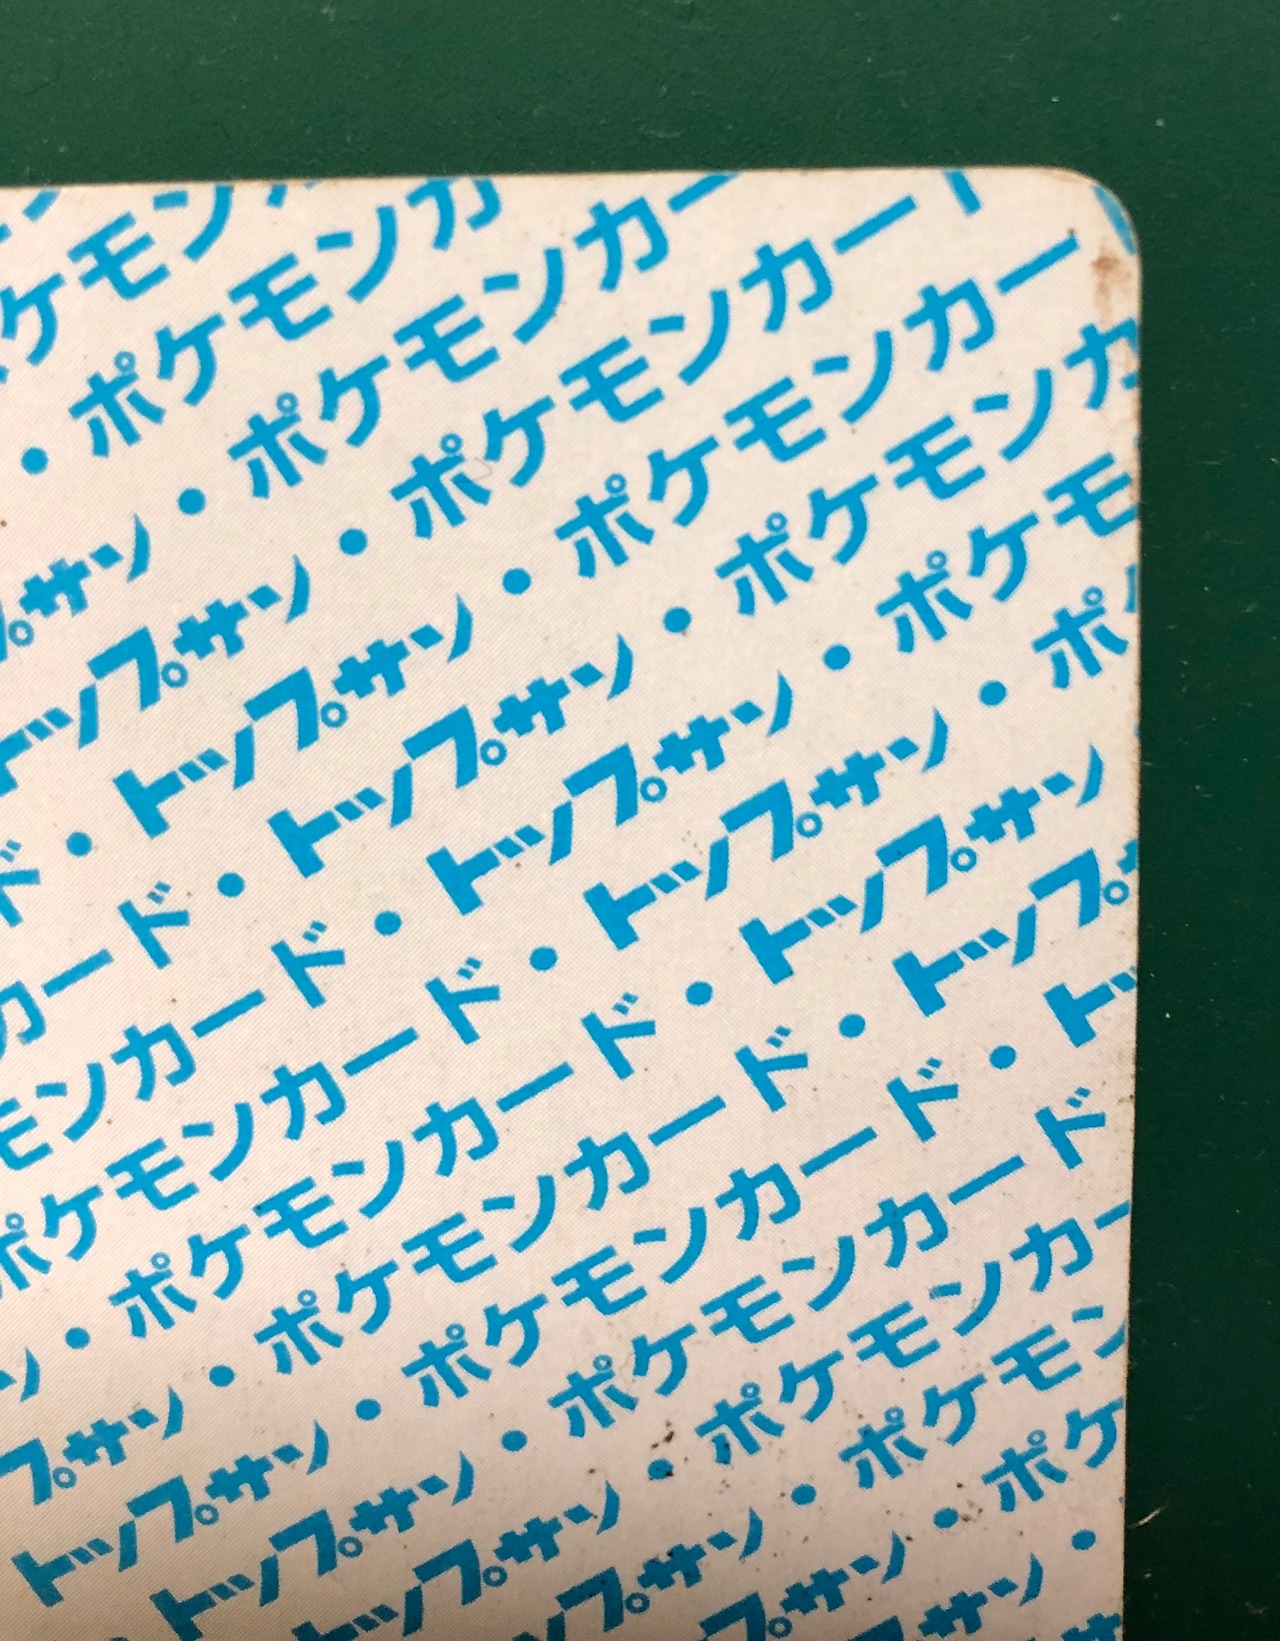 ケモン
・ポケモンカ
プサン・ポケモンカー
トップサン・ポケモンカード
ド・トップサン・ポケモンカー
カード・トップサン・ポケモンカ
モンカード・トップサン・ポケモ
ポケモンカード・トップサン・ポケ
ン・ポケモンカード・トップサン
プサン・ポケモンカード・トップサ
トップサン・ポケモンカード・トッ
トップサン・ポケモンカード
トップサン・ポケモンカー
ップサン・ポケモン
プサン・ポケ
サン・